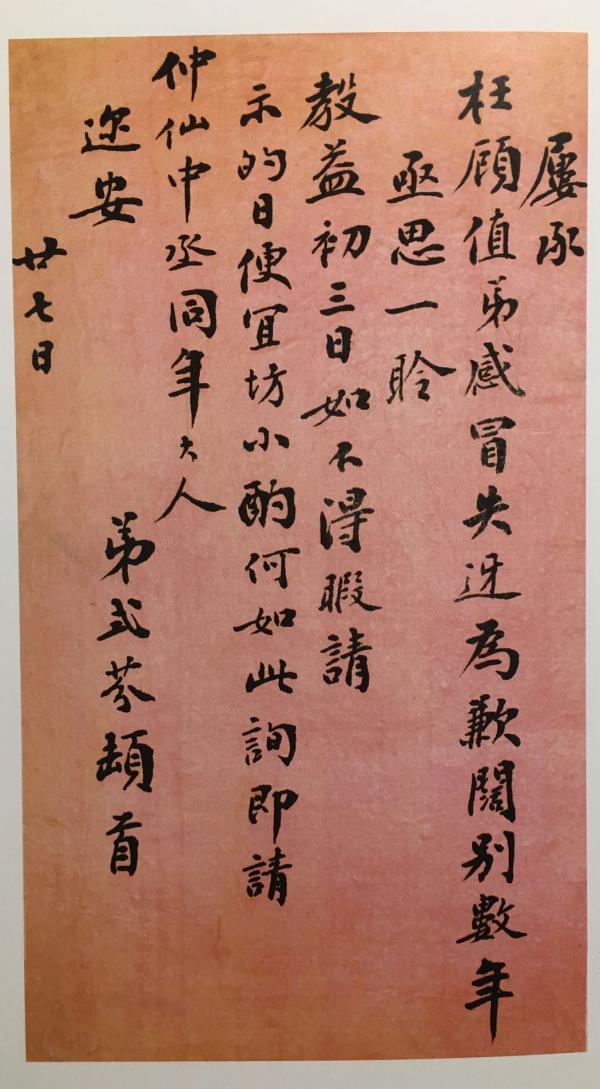 屢承
枉顧值弟感冒失迓為歉闊別數年
亟思一聆
教益初三日如不得暇請
示的日便宜坊小酌何如此詢即請
仲仙中丞同年大人
邇安
弟式芬頓首
廿七日